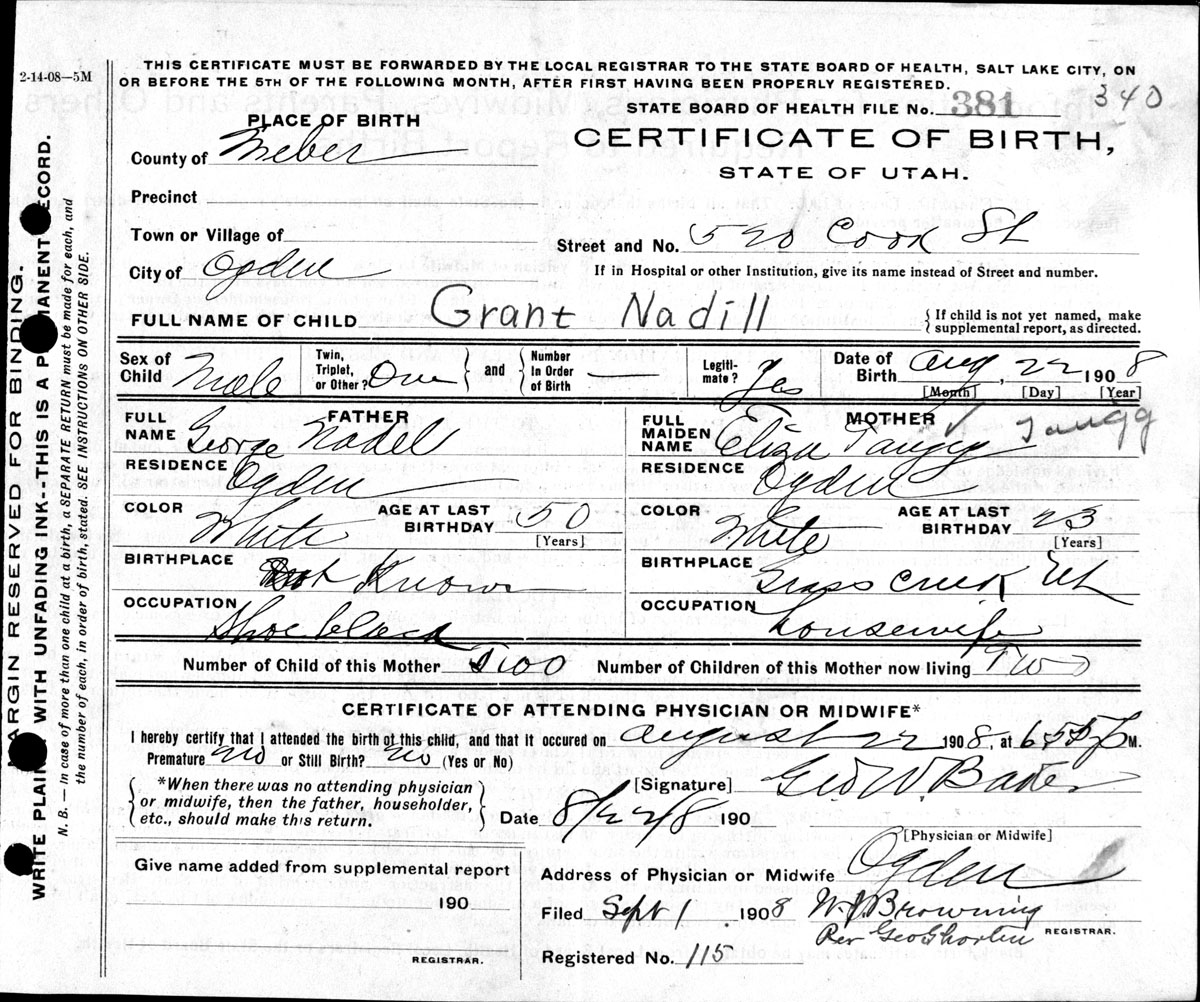 2-14-08—5M
THIS CERTIFICATE MUST BE FORWARDED BY THE LOCAL REGISTRAR TO THE STATE BOARD OF HEALTH, SALT LAKE CITY, ON
OR BEFORE THE 5TH OF THE FOLLOWING MONTH, AFTER FIRST HAVING BEEN PROPERLY REGISTERED.
STATE BOARD OF HEALTH FILE No. 381 340
PLACE OF BIRTH
CERTIFICATE OF BIRTH,
STATE OF UTAH.
County of Weber
Precinct
Town or Village of
Street and No. 520 Cook St
City of Ogden
If in Hospital or other Institution, give its name instead of Street and number.
FULL NAME OF CHILD Grant Nadill
{ If child is not yet named, make
supplemental report, as directed.
Sex of Child Male
Twin, Triplet, or Other? One } and { Number In Order of Birth —
Legitimate? Yes
Date of Birth Aug, 22 1908
[Month] [Day] [Year]
FATHER
FULL NAME George Nadel
MOTHER
FULL MAIDEN NAME Eliza Taugg Taugg
RESIDENCE Ogden
RESIDENCE Ogden
COLOR White
AGE AT LAST BIRTHDAY 50
[Years]
COLOR White
AGE AT LAST BIRTHDAY 23
[Years]
BIRTHPLACE Know
BIRTHPLACE Grass Creek Ut
OCCUPATION Shoeblack
OCCUPATION housewife
Number of Child of this Mother Two
Number of Children of this Mother now living Two
CERTIFICATE OF ATTENDING PHYSICIAN OR MIDWIFE*
I hereby certify that I attended the birth of this child, and that it occured on August 22 1908, at 655 P M.
Premature no or Still Birth? no (Yes or No)
[Signature] Geo W. Baker
{ *When there was no attending physician
or midwife, then the father, householder,
etc., should make this return. }
Date 8/22/8 190
[Physician or Midwife]
Give name added from supplemental report
190
REGISTRAR.
Address of Physician or Midwife Ogden
Filed Sept 1 1908 W. J. Browning
Per Geo Shorten REGISTRAR.
Registered No. 115
MARGIN RESERVED FOR BINDING.
WRITE PLAINLY WITH UNFADING INK-THIS IS A PERMANENT RECORD.
N. B. — In case of more than one child at a birth, a SEPARATE RETURN must be made for each, and
the number of each, in order of birth, stated. SEE INSTRUCTIONS ON OTHER SIDE.